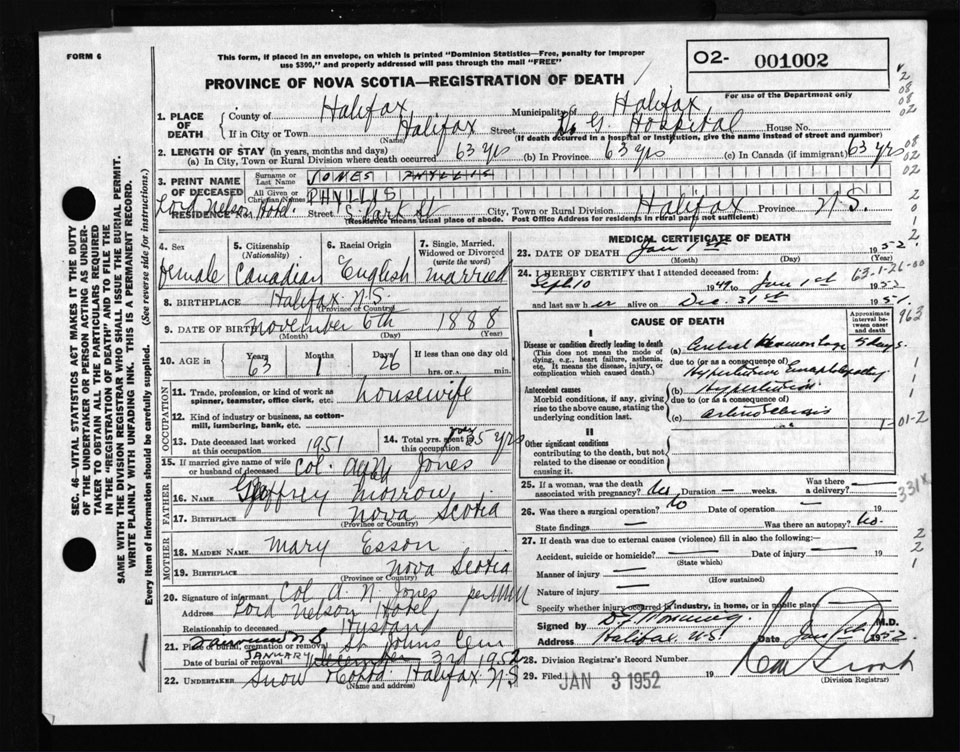 FORM 6
This form, if placed in an envelope, on which is printed "Dominion Statistics—Free, penalty for improper
use $300," and properly addressed will pass through the mail "FREE"
02- 001002
For use of the Department only
PROVINCE OF NOVA SCOTIA—REGISTRATION OF DEATH
1. PLACE OF DEATH
County of Halifax Municipality of Halifax
If in City or Town Halifax Street Hospital House No.
(Name) (If death occurred in a hospital or institution, give the name instead of street and number)
2. LENGTH OF STAY (in years, months and days)
(a) In City, Town or Rural Division where death occurred 63 yrs (b) In Province 63 yrs (c) In Canada (if immigrant) 63 yrs
3. PRINT NAME OF DECEASED
Surname or Last Name JONES PHYLLIS
All Given or Christian Names PHYLLIS
RESIDENCE No. Lord Nelson Hotel Street S Park St City, Town or Rural Division Halifax Province N.S.
(Residence means usual place of abode. Post Office Address for residents in rural parts not sufficient)
4. Sex female
5. Citizenship (Nationality) Canadian
6. Racial Origin English
7. Single, Married, Widowed or Divorced (write the word) married
8. BIRTHPLACE Halifax N.S.
(Province or Country)
9. DATE OF BIRTH November 6th 1888
(Month) (Day) (Year)
10. AGE in Years 63 Months 1 Days 26 If less than one day old hrs. or min.
OCCUPATION
11. Trade, profession, or kind of work as spinner, teamster, office clerk, etc. housewife
12. Kind of industry or business, as cotton-mill, lumbering, bank, etc.
13. Date deceased last worked at this occupation 1951
14. Total yrs. spent in this occupation 35 yrs
15. If married give name of wife or husband of deceased Col. Jones
FATHER
16. NAME Geoffrey Morrow
17. BIRTHPLACE Nova Scotia
(Province or Country)
MOTHER
18. MAIDEN NAME Mary Esson
19. BIRTHPLACE Nova Scotia
(Province or Country)
20. Signature of informant Col. A. N. Jones per
Address Lord Nelson Hotel
Relationship to deceased Husband
21. Place of burial, cremation or removal Fairview N S St Johns Cem
Date of burial or removal JANUARY 3rd 1952
22. UNDERTAKER Snow Halifax N.S
(Name and address)
MEDICAL CERTIFICATE OF DEATH
23. DATE OF DEATH Jan 1st 1952
(Month) (Day)
24. I HEREBY CERTIFY that I attended deceased from:
Sept 10 1949 to Jan 1st 1952
and last saw her alive on Dec. 31st 1951
CAUSE OF DEATH
Approximate interval between onset and death
I
Disease or condition directly leading to death (a) Cerebral Hemorrhage 5 days.
(This does not mean the mode of dying, e.g., heart failure, asthenia, etc. It means the disease, injury, or complication which caused death.)
due to (or as a consequence of)
Hypertensive Encephalopathy
Antecedent causes (b) Hypertension
Morbid conditions, if any, giving rise to the above cause, stating the underlying condition last.
due to (or as a consequence of)
(c) arteriosclerosis
II
Other significant conditions contributing to the death, but not related to the disease or condition causing it.
25. If a woman, was the death associated with pregnancy? Duration — weeks. Was there a delivery? —
26. Was there a surgical operation? no Date of operation — 19
State findings — Was there an autopsy? no.
27. If death was due to external causes (violence) fill in also the following:—
Accident, suicide or homicide? — Date of injury — 19
(State which)
Manner of injury —
(How sustained)
Nature of injury —
Specify whether injury occurred in industry, in home, or in public place
Signed by M.D.
Address Halifax N.S. Date Jan 1952
28. Division Registrar's Record Number
29. Filed JAN 3 1952 19
(Division Registrar)
SEC. 46—VITAL STATISTICS ACT MAKES IT THE DUTY
OF THE UNDERTAKER OR PERSON ACTING AS UNDER-
TAKER TO OBTAIN ALL THE PARTICULARS REQUIRED
IN THE "REGISTRATION OF DEATH" AND TO FILE THE
SAME WITH THE DIVISION REGISTRAR WHO SHALL ISSUE THE BURIAL PERMIT.
WRITE PLAINLY WITH UNFADING INK. THIS IS A PERMANENT RECORD.
Every item of information should be carefully supplied. (See reverse side for instructions.)
63-1-26-00
963
1-01-2
331X